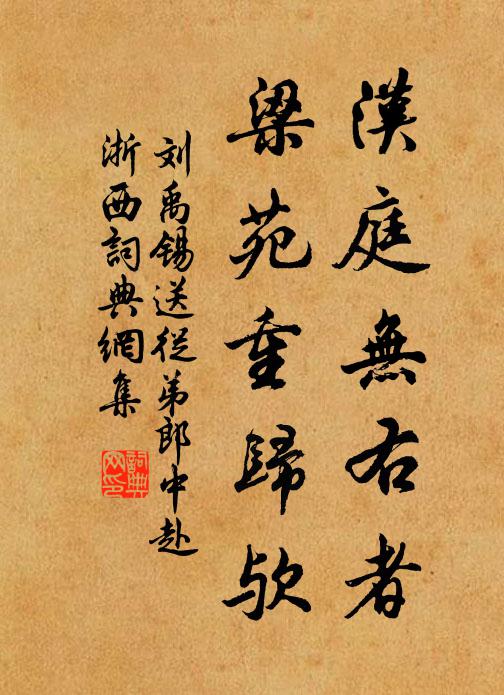 漢庭無右者
梁苑重歸欤
刘禹锡送從弟郎中赴
浙西詞典網集
詞典網印